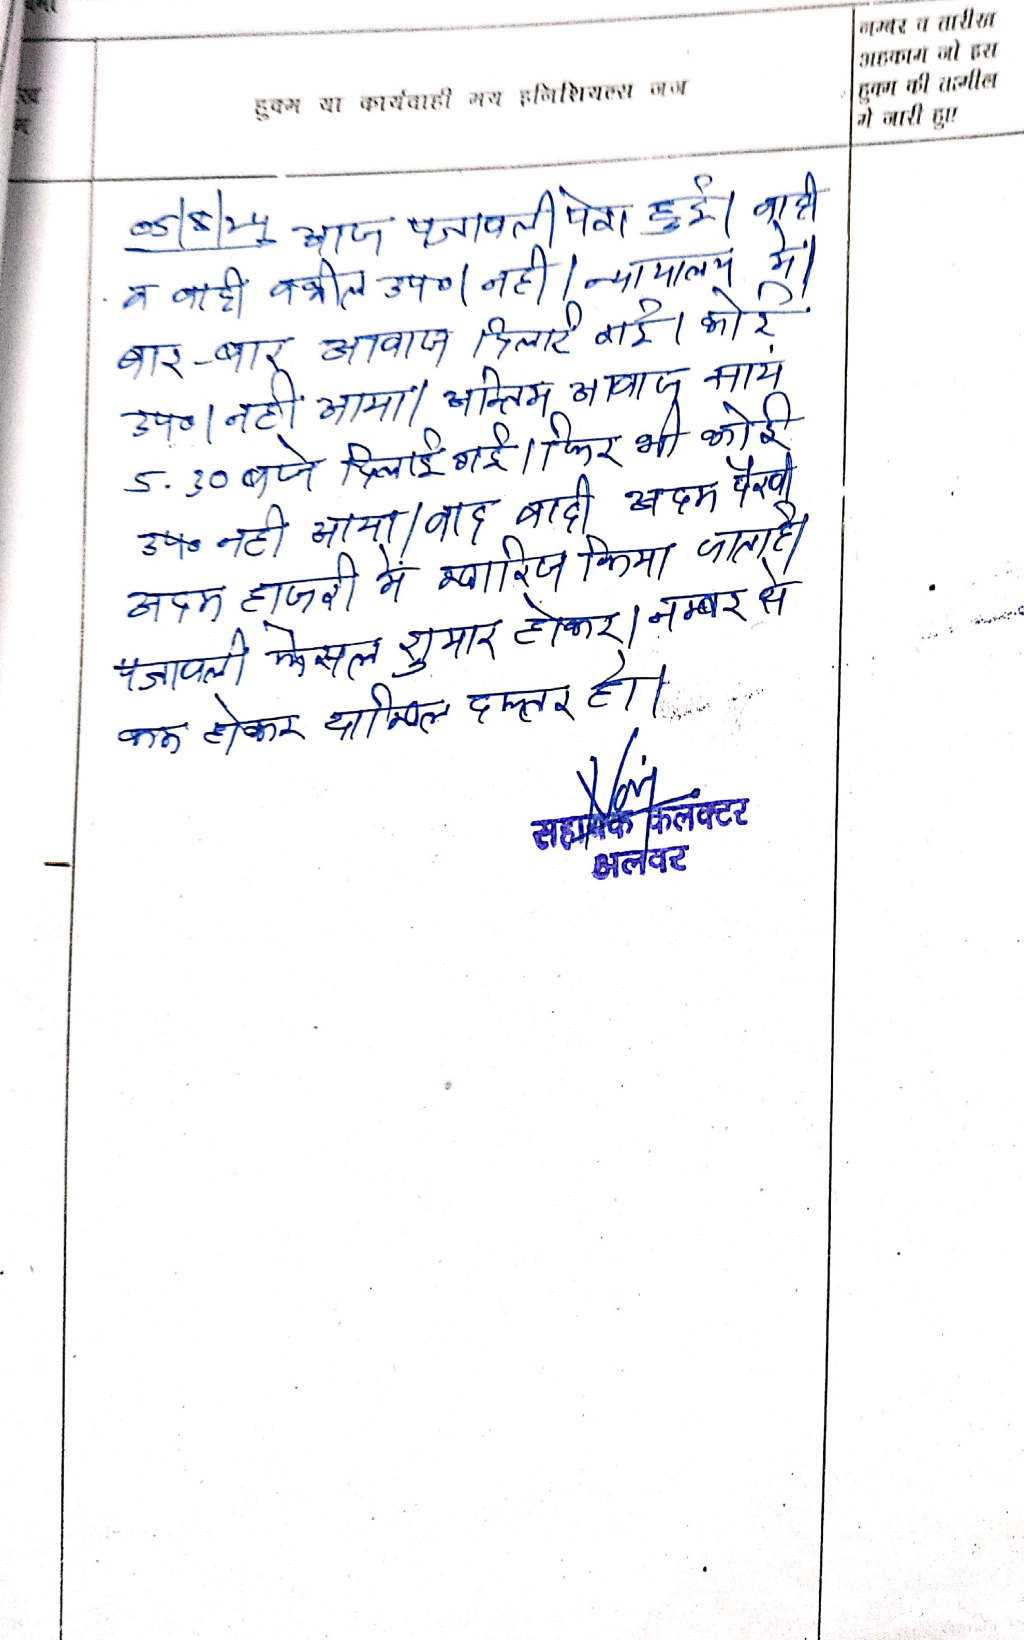 नम्बर व तारीख
अहकाम जो इस
हुक्म की तामील
मे जारी हुए
हुक्म या कार्यवाही मय इनिशियल्स जज
आज पत्रावली पेश हुई। वादी
व वादी वकील उप०। नही। न्यायालय में।
बार-बार आवाज दिलाई गई। कोई
उप०। नही आया। अन्तिम आवाज सायं
5.30 बजे दिलाई गई। फिर भी कोई
उप० नही आया। वाद वादी अदम पैरवी
अदम हाजरी में खारिज किया जाता है।
पत्रावली फैसल शुमार होकर। नम्बर से
कम होकर दाखिल दफ्तर हो।
सहायक कलक्टर
अलवर